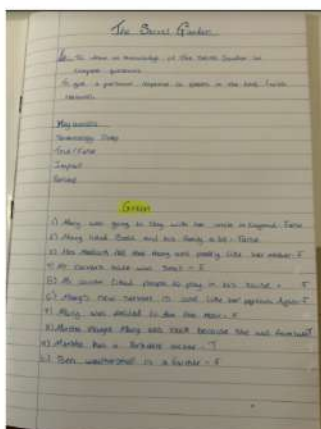 The Secret Garden
to show my knowledge of The Secret Garden by
questions
To give a personal response to events in the book (with
reasons)
Key words
True/False
Impact
Green
1) Mary was going to stay with her uncle in England False
2) Mary liked Basil and his family a lot - False
3) Mrs Medlock felt that Mary was pretty like her mother - F
4) Mr Craven's house was small - F
5) Mr Craven liked people to play in his house - F
6) Mary's new servant is just like her Ayah - F
7) Mary was excited to see the Moor - F
8) Martha thought Mary was black because she was from India T
9) Martha has a Yorkshire accent - T
10) Ben Weatherstaff is a farmer - F